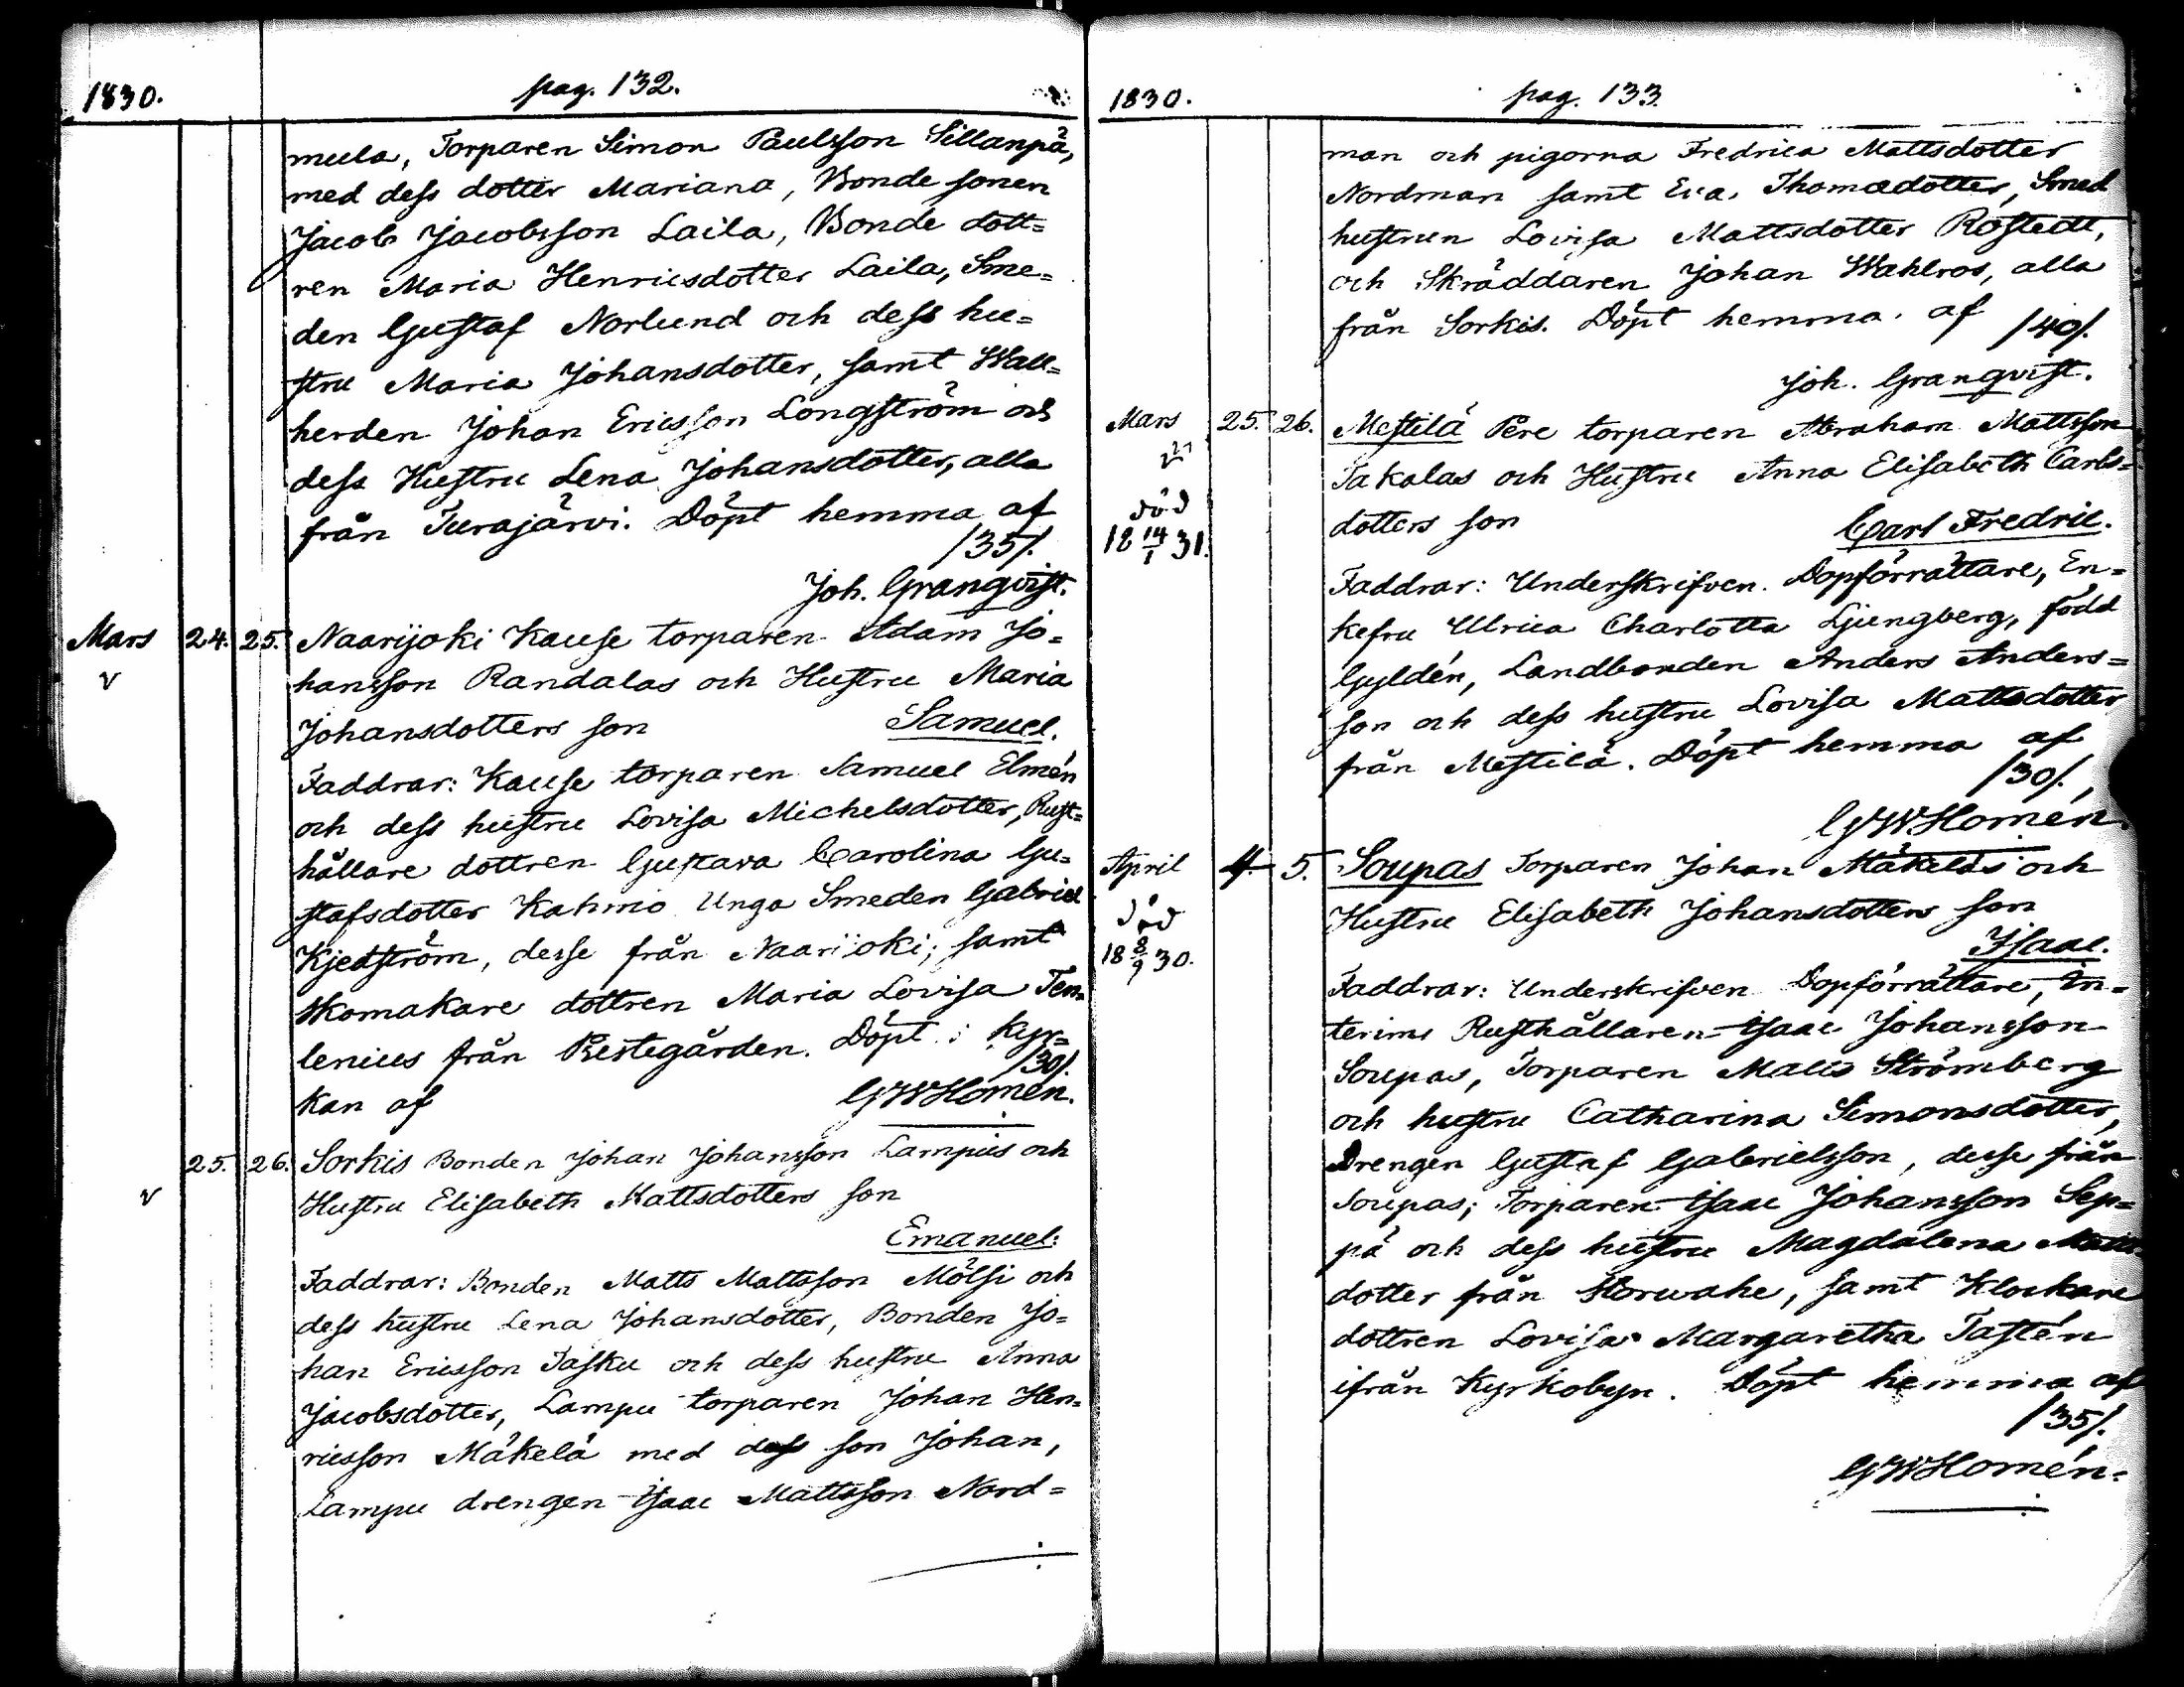 1830.
pag. 132.
mula, Torparen Simon Paulsson Sillanpä,
med dess dotter Mariana, Bonde sonen
Jacob Jacobsson Laila, Bonde dott=
ren Maria Henricsdotter Laila, Sme=
den Gustaf Norlund och dess hu=
stru Maria Johansdotter, samt Wall=
herden Johan Ericsson Longström och
dess Hustru Lena Johansdotter, alla
från Turajärvi. Döpt hemma af
/35/.
Joh. Granqvist.
Mars 24. 25. Naarijoki Kause torparen Adam Jo=
v hansson Randalas och Hustru Maria
Johansdotters son Samuel.
Faddrar: Kause torparen Samuel Elmén
och dess hustru Lovisa Michelsdotter, Rust=
hållare dottren Gustava Carolina Gu=
stafsdotter Kahmo Unga Smeden Gabriel
Kjedström, desse från Naarijoki; samt
Skomakare dottren Maria Lovisa Ten=
lenius från Prestegården. Döpt i Kyr=
/30/.
kan af GWHomén.
25. 26. Sorkis Bonden Johan Johansson Lampus och
v Hustru Elisabeth Mattsdotters son
Emanuel.
Faddrar: Bonden Matts Mattsson Mölsi och
dess hustru Lena Johansdotter, Bonden Jo=
han Ericsson Tasku och dess hustru Anna
Jacobsdotter, Lampu torparen Johan Hen=
ricsson Mäkelä med dess son Johan,
Lampu drengen Isaac Mattsson Nord=
1830.
pag. 133.
man och pigorna Fredrica Mattsdotter
Nordman samt Eva Thomædotter, Smed
hustrun Lovisa Mattsdotter Rostedt,
och Skräddaren Johan Wahlros, alla
från Sorkis. Döpt hemma af /40/.
Joh. Granqvist.
Mars 25. 26. Mestilä Pere torparen Abraham Mattsson
Takalas och Hustru Anna Elisabeth Carls=
död
dotters son Carl Fredric.
18 14/1 31.
Faddrar: Underskrifven Dopförrättare, En=
kefru Ulrica Charlotta Ljungberg, född
Gyldén, Landbonden Anders Anders=
son och dess hustru Lovisa Mattsdotter
från Mestilä. Döpt hemma af
/30/.
GWHomén.
April 4. 5. Soupas Torparen Johan Mäkeläs och
död Hustru Elisabeth Johansdotters son
18 8/9 30. Isaac.
Faddrar: Underskrifven Dopförrättare, In=
terims Rusthållaren Isaac Johansson
Soupas, Torparen Matts Strömberg
och hustru Catharina Simonsdotter,
Drengen Gustaf Gabrielsson, desse från
Soupas; Torparen Isaac Johansson Sep=
pä och dess hustru Magdalena Matts
dotter från Korwahe, samt Klockare
dottren Lovisa Margaretha Tastén
ifrån Kyrkobyn. Döpt hemma af
/35/.
GWHomén.